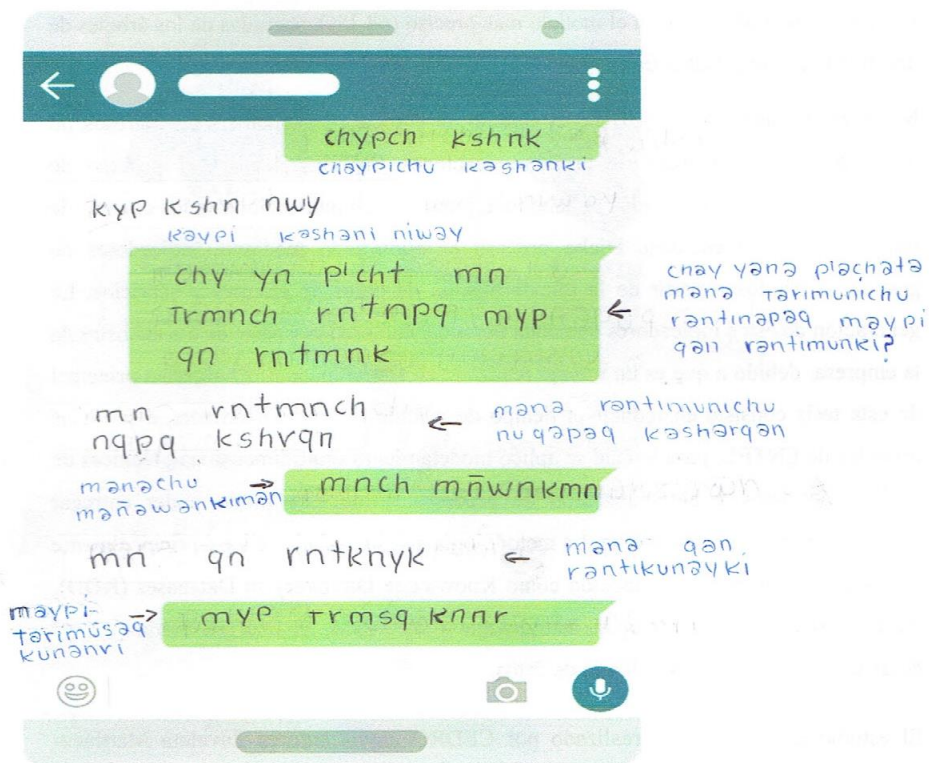 chypch kshnk
chaypichu kashanki
kyp kshn nwy
kaypi kashani niway
chy yn p'cht mn
Trmnch rntnpq myp ←
qn rntmnk
chay yana p'achata
mana tarimunichu
rantinapaq maypi
qan rantimunki?
mn rntmnch
nqpq kshrqn ←
mana rantimunichu
nuqapaq kasharqan
manachu →
mañawankiman
mnch mñwnkmn
mn qn rntknyk ←
mana qan
rantikunayki
maypi →
tarimusaq
kunanri
myp Trmsq knnr
realizado por